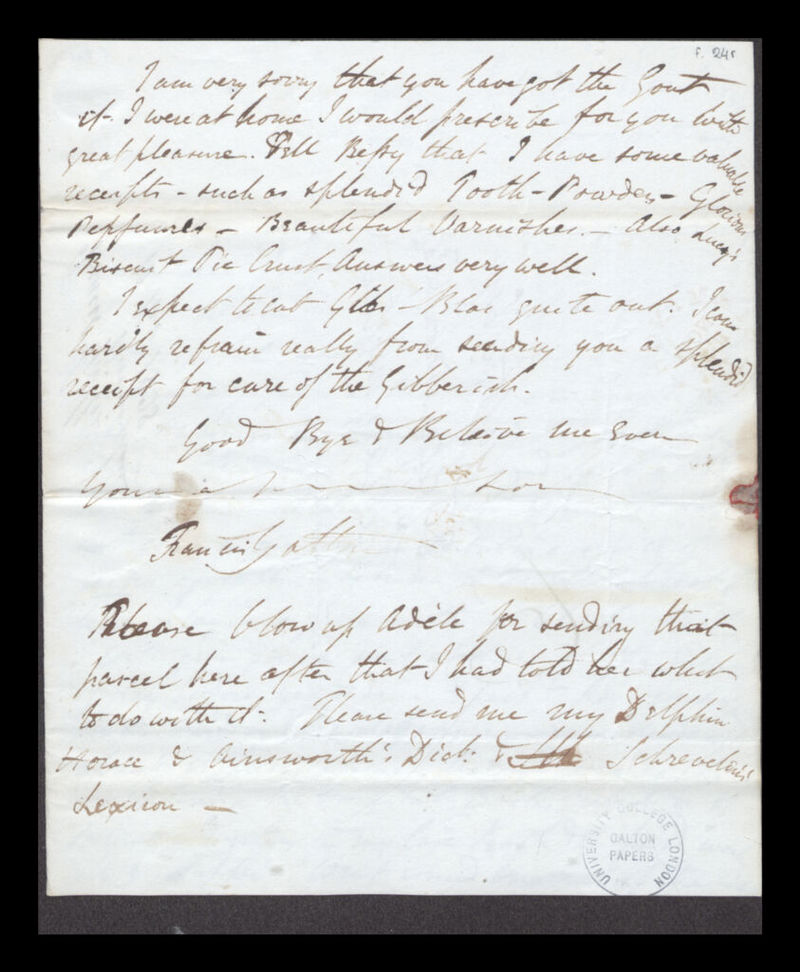 f. 24r
I am very sorry that you have got the Gout
if I were at home I would prescribe for you with
great pleasure. Tell Bessy that I have some valuable
receipts - such as splendid Tooth-Powder - Glorious
Perfumes - Beautiful Varnishes. - Also Lucy's
Biscuit Pie Crust, Answers very well.
I expect to cut out. I can
hardly refrain really from sending you a splendid
receipt for cure of the Gibberish.
Good Bye & Believe me Ever
Your son
Francis Galton
Please blow up Adèle for sending that
parcel here after that I had told her what
to do with it. Please send me my Delphin
Horace & Ainsworth's Dict: & Schrevelius'
Lexicon —
UNIVERSITY COLLEGE LONDON
GALTON
PAPERS